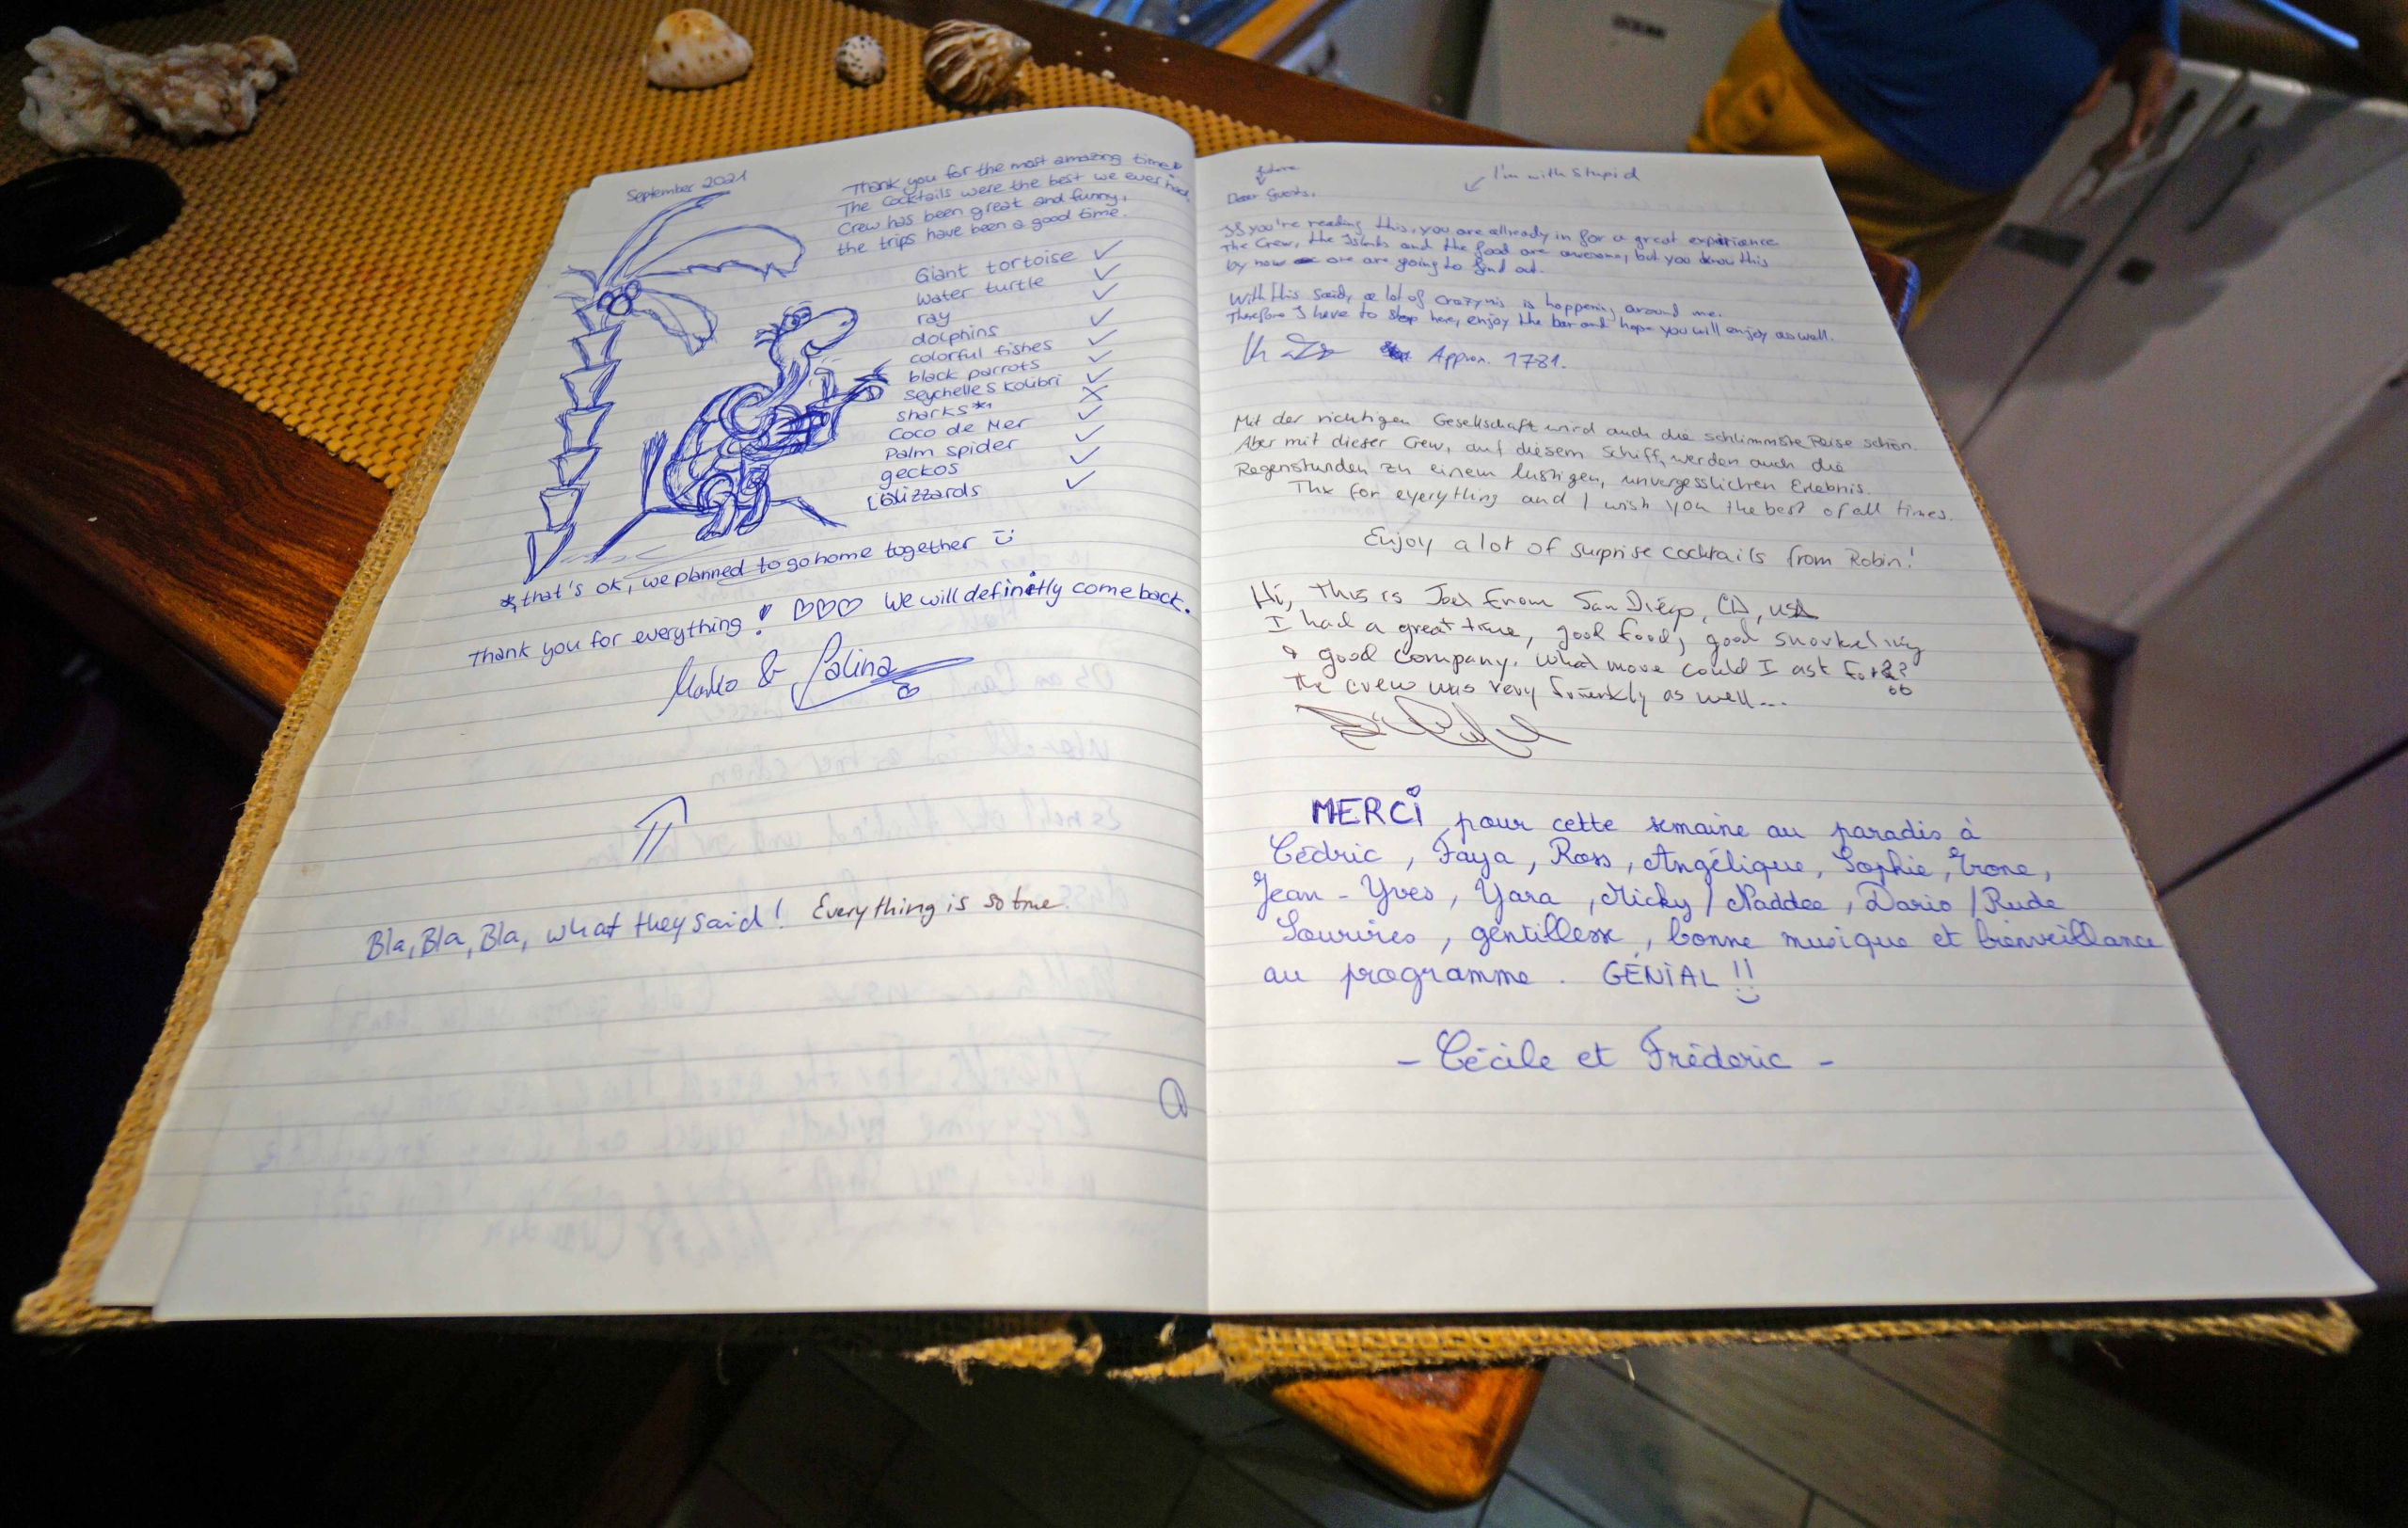 September 2021
Thank you for the most amazing time
The Cocktails were the best we ever had.
Crew has been great and funny,
the trips have been a good time.
Giant tortoise ✓
water turtle ✓
ray ✓
dolphins ✓
colorful fishes ✓
black parrots ✓
Seychelles Kolibri ✓
sharks*1 X
Coco de Mer ✓
Palm spider ✓
geckos ✓
lizzards ✓
*1 that's ok, we planned to go home together
Thank you for everything! ♡♡♡ We will definitly come back.
&
Bla, Bla, Bla, what they said! Everything is so true
future
Dear Guests,
I'm with stupid
If you're reading this, you are allready in for a great expirience
The Crew, the Islands and the food are awesome, but you know this
by now or are going to find out.
With this said, a lot of crazynis is happening around me.
Therefore I have to stop here, enjoy the bar and hope you will enjoy as well.
Approx. 1781.
Mit der richtigen Gesellschaft wird auch die schlimmste Reise schön.
Aber mit dieser Crew, auf diesem Schiff, werden auch die
Regenstunden zu einem lustigen, unvergesslichen Erlebnis.
Thx for everything and I wish you the best of all times.
Enjoy a lot of surprise cocktails from Robin!
Hi, This is Joel from San Diego, CA, USA
I had a great time, good food, good snorkeling
& good company. What more could I ask for??
The crew was very friendly as well...
MERCI pour cette semaine au paradis à
Cédric, Faya, Ross, Angélique, Sophie, Erone,
Jean-Yves, Yara, Micky / Naddee, Dario / Rude
Sourires, gentillesse, bonne musique et bienveillance
au programme. GÉNIAL !!
- Cécile et Fréderic -